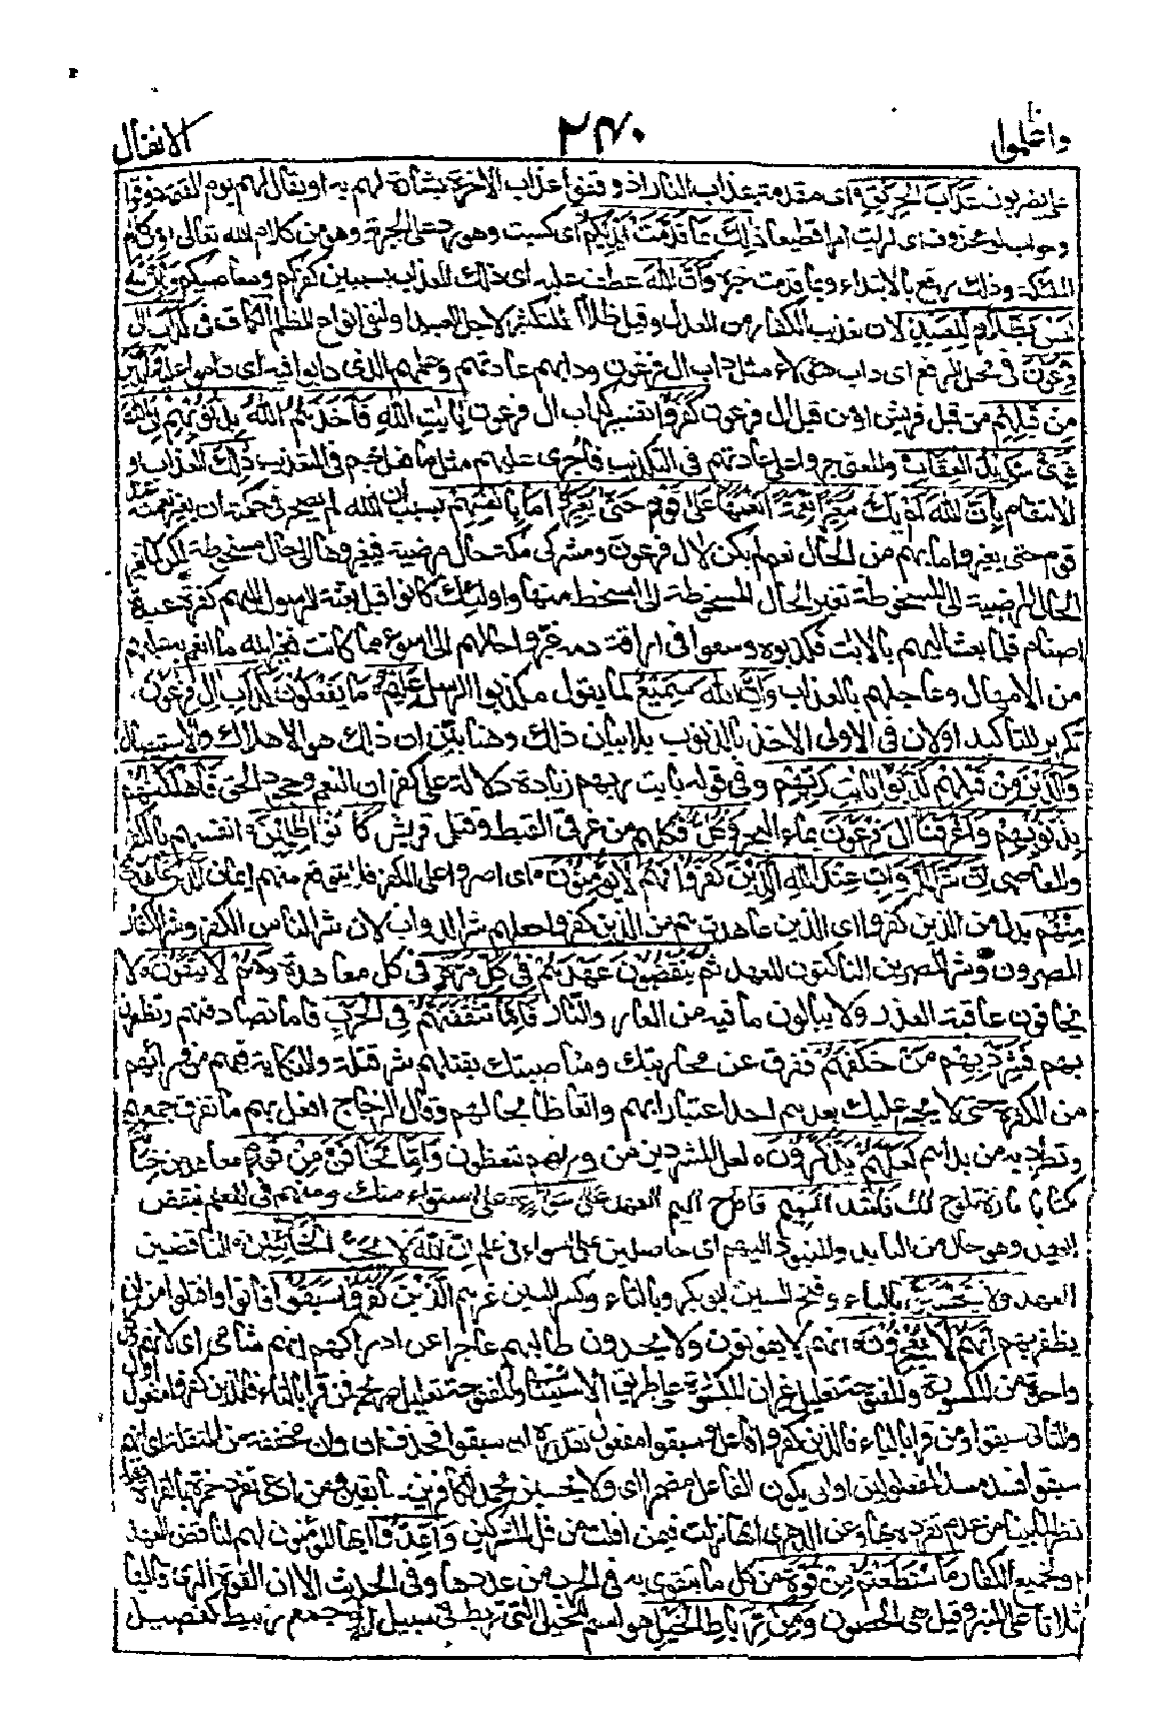 واعلموا ۲۴۰ الانفال
عذاب الحريق اى مقدمة عذاب النار او ذوقوا عذاب الاخرة بشارة لهم به او يقال لهم يوم القيمة ذوقوا
وجواب لو محذوف اى لرايت امرا فظيعا ذلك بما قدمت ايديكم اى كسبت وهو رد على الجبرية وهو من كلام الله تعالى او من كلام
الملئكة وذلك رفع بالابتداء وبما قدمت خبره وان الله عطف عليه اى ذلك العذاب بسببين كفركم ومعاصيكم وبان الله
ليس بظلام للعبيد لان تعذيب الكفار من العدل وقيل ظلام للتكثير لاجل العبيد او لنفى انواع الظلم الكاف فى كداب ال
فرعون فى محل الرفع اى داب هؤلاء مثل داب ال فرعون ودابهم عادتهم وعملهم الذى دابوا فيه اى داوموا عليه والذين
من قبلهم من قبل قريش او من قبل ال فرعون كفروا تفسير لداب ال فرعون بايت الله فاخذهم الله بذنوبهم ان الله
قوى شديد العقاب والمعنى جروا على عادتهم فى التكذيب فاجرى عليهم مثل ما فعل بهم فى التعذيب ذلك العذاب او
الانتقام بان الله لم يك مغيرا نعمة انعمها على قوم حتى يغيروا ما بانفسهم بسبب ان الله لم يصح فى حكمته ان يغير نعمته عند
قوم حتى يغيروا ما بهم من الحال نعم لم يكن لال فرعون ومشركى مكة حال مرضية فيغيروها الى حال مسخوطة لكن لما تغيرت
الحال المرضية الى المسخوطة تغير الحال المسخوطة الى اسخط منها واولئك كانوا قبل بعثة الرسول اليهم كفرة عبدة
اصنام فلما بعث اليهم بالايت فكذبوه وسعوا فى اراقة دمه غيروا حالهم الى اسوء مما كانت فغير الله ما انعم به عليهم
من الامهال وعاجلهم بالعذاب وان الله سميع لما يقول مكذبوا الرسل عليم بما يفعلون كداب ال فرعون
تكرير للتاكيد او لان فى الاولى الاخذ بالذنوب بلا بيان ذلك وهنا بين ان ذلك هو الاهلاك والاستيصال
والذين من قبلهم كذبوا بايت ربهم وفى قوله بايت ربهم زيادة دلالة على كفران النعم وجحود الحق فاهلكنهم
بذنوبهم واغرقنا ال فرعون بماء البحر وكل وكلهم من غرقى القبط وقتلى قريش كانوا ظلمين انفسهم بالكفر
والمعاصى ان شر الدواب عند الله الذين كفروا فهم لا يؤمنون اى اصروا على الكفر فلا يتوقع منهم ايمان الذين عاهدت
منهم بدل من الذين كفروا اى الذين عاهدتهم من الذين كفروا جعلهم شر الدواب لان شر الناس الكفر وشر الكفار
المصرون وشر المصرين الناكثون للعهد ثم ينقضون عهدهم فى كل مرة فى كل معاهدة وهم لا يتقون لا
يخافون عاقبة الغدر ولا يبالون ما فيه من العار والنار فاما تثقفنهم فى الحرب فاما تصادفنهم وتظفرن
بهم فشرد بهم من خلفهم ففرق عن محاربتك ومناصبتك بقتلهم شر قتلة والنكاية فيهم من وراءهم
من الكفرة حتى لا يجسر عليك بعدهم احد اعتبارا بهم واتعاظا بحالهم وقال الزجاج افعل بهم ما تفرق جمعهم
وتطرد به من بدائهم لعلهم يذكرون لعل المشردين من وراءهم يتعظون واما تخافن من قوم معاهدين خيانة
نكثا بامارة تلوح لك فانبذ اليهم فاطرح اليهم العهد على سواء على استواء منك ومنهم فى العلم بنقض
العهد وهو حال من النابذ والمنبوذ اليهم اى حاصلين على سواء فى علم ان الله لا يحب الخائنين الناقضين
العهد ولا يحسبن بالياء وفتح السين ابو بكر وبالتاء وكسر السين غيرهم الذين كفروا سبقوا فاتوا وافلتوا من ان
يظفر بهم انهم لا يعجزون انهم لا يفوتون ولا يجدون طالبهم عاجزا عن ادراكهم انهم شامى اى لانهم كل
واحدة من المكسورة والمفتوحة تعليل غير ان المكسورة على طريق الاستيناف والمفتوحة تعليل صريح فمن قرا بالتاء فالذين كفروا مفعول اول
والثانى سبقوا ومن قرا بالياء فالذين كفروا فاعل وسبقوا مفعول تقديره ان سبقوا فحذف ان وان مخففة من المثقلة اى انهم
سبقوا فسد مسد المفعولين او يكون الفاعل مضمرا اى ولا يحسبن محمد الكافرين سابقين ومن ادعى تفرد حمزة بالقراءة
نظر لما بينا من عدم تفرده بها وعن الزهرى انها نزلت فيمن افلت من فل المشركين واعدوا ايها المؤمنون لهم لناقض العهد
او لجميع الكفار ما استطعتم من قوة من كل ما يتقوى به فى الحرب من عددها وفى الحديث الا ان القوة الرمى قالها
ثلاثا على المنبر وقيل هى الحصون ومن رباط الخيل هو اسم للخيل التى تربط فى سبيل الله او جمع ربيط كفصيل